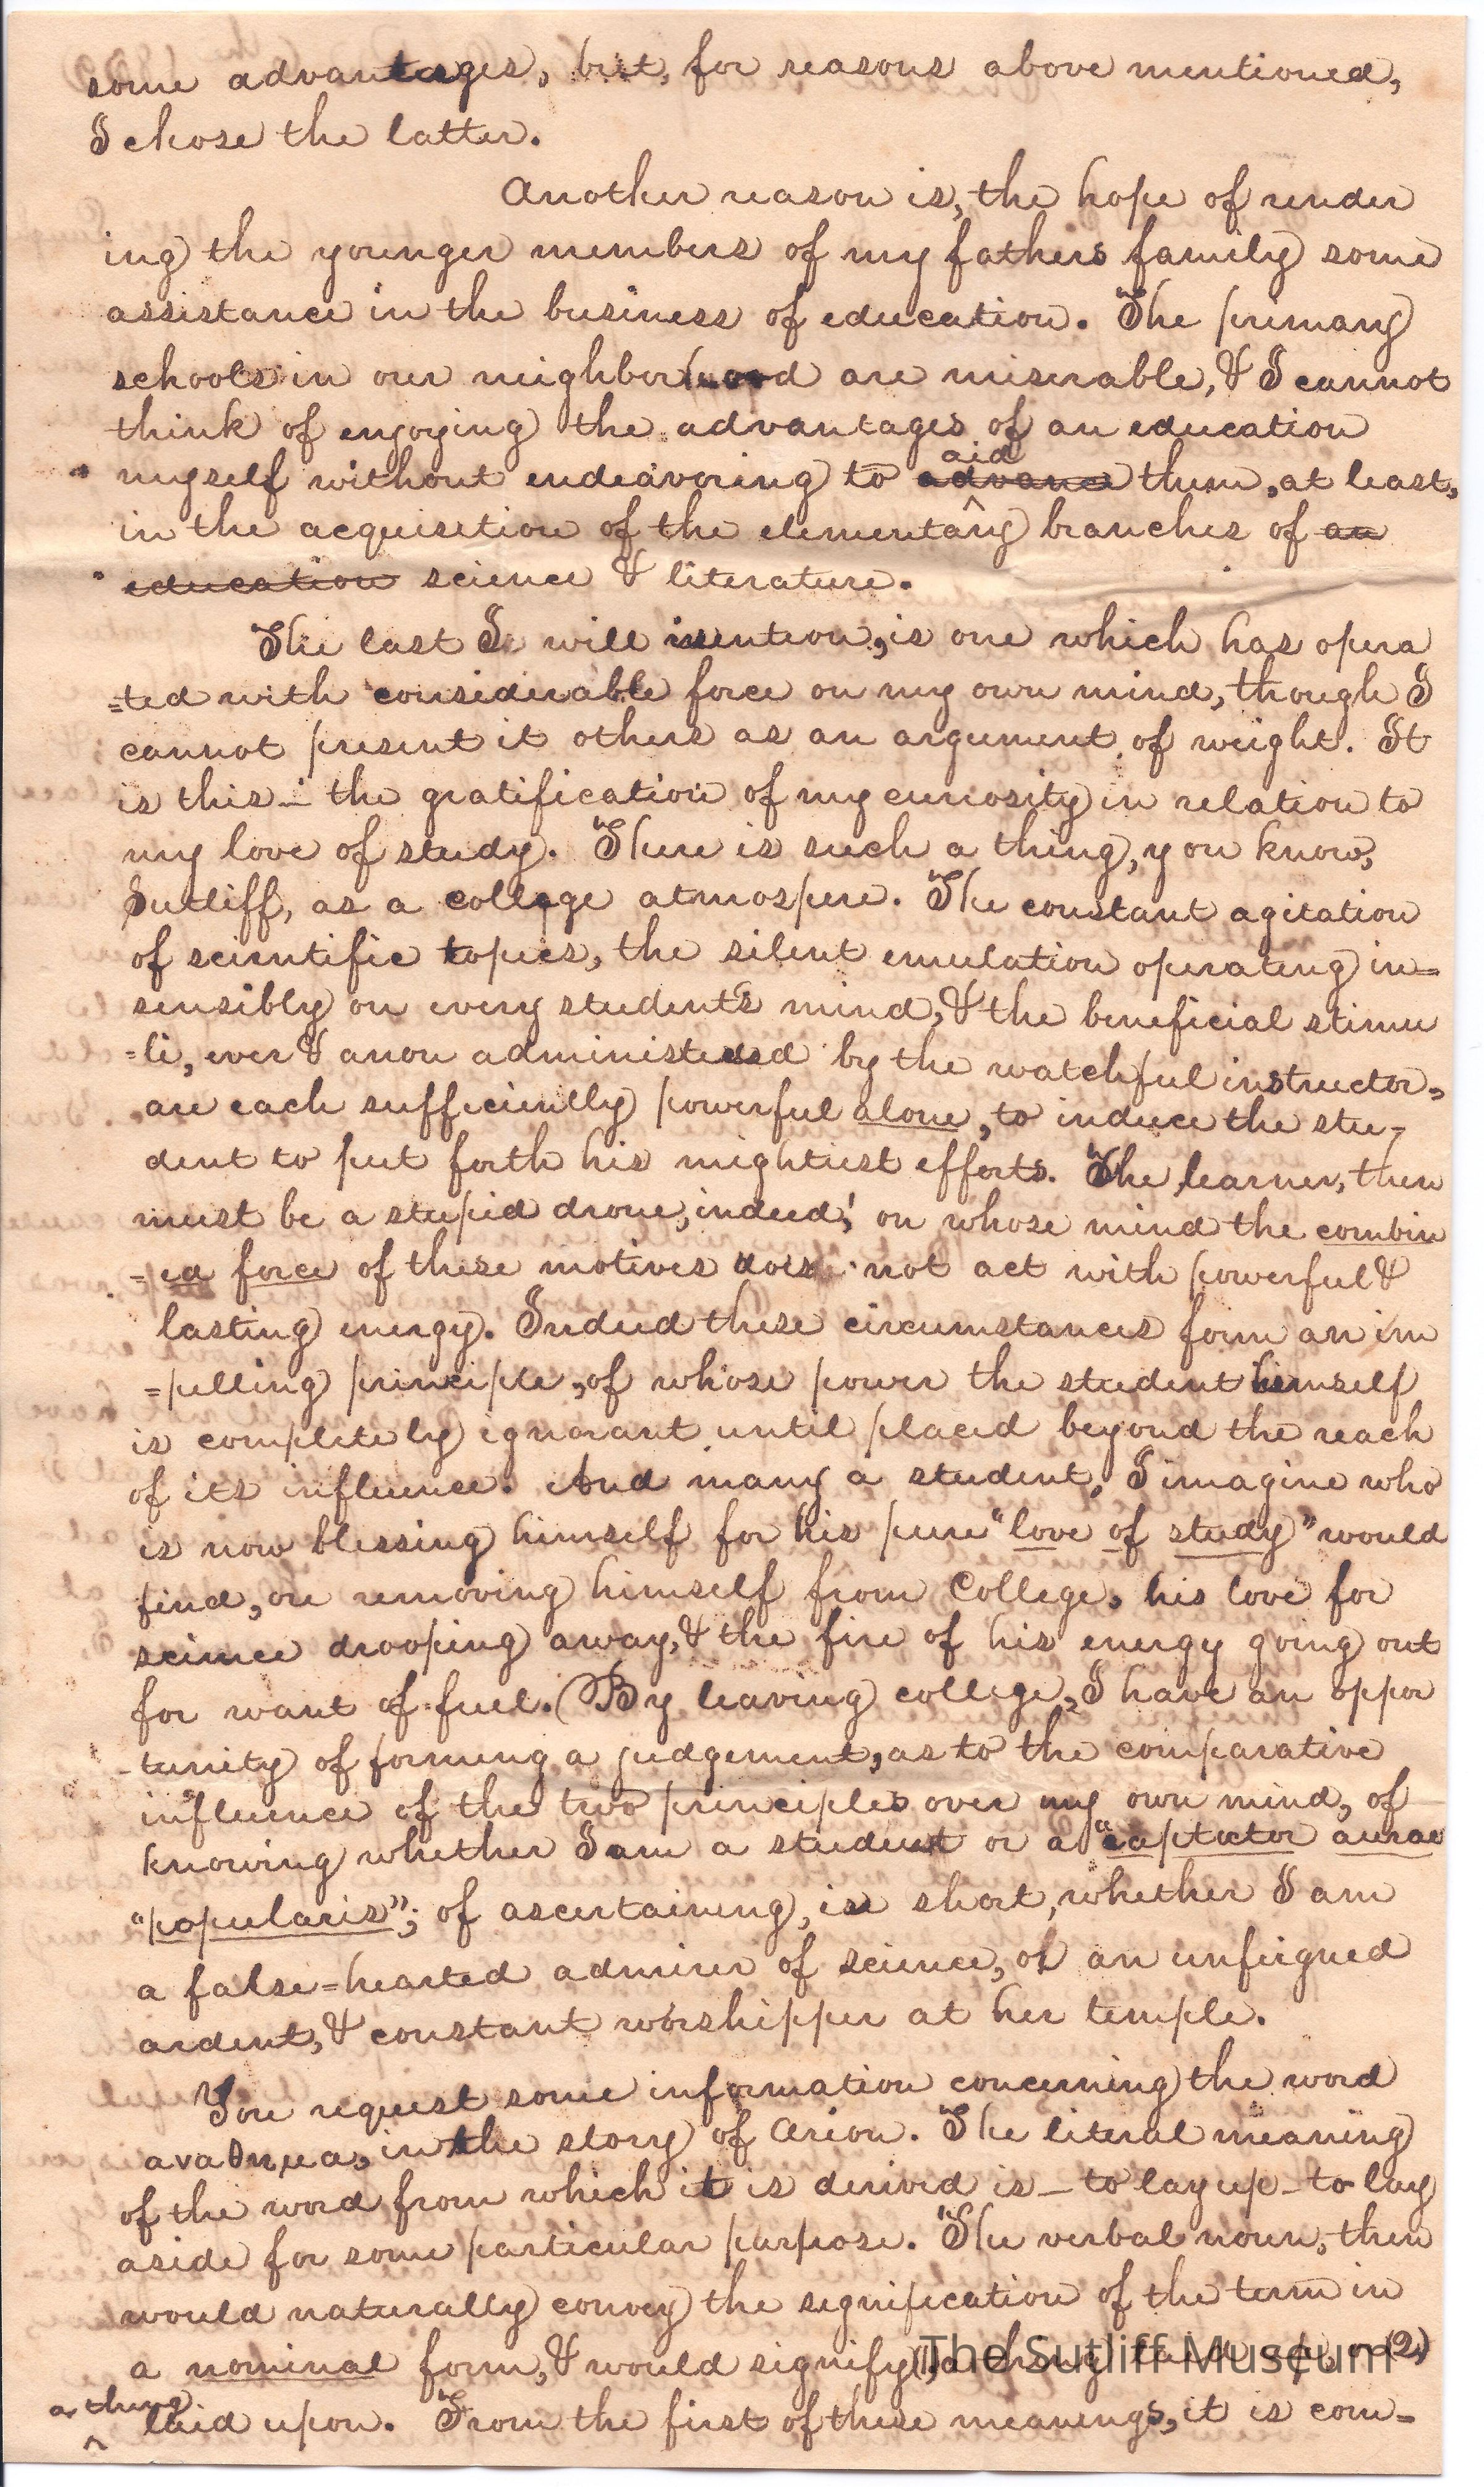 some advantages, but, for reasons above mentioned,
I chose the latter.
Another reason is, the hope of render
ing the younger members of my fathers family some
assistance in the business of education. The primary
schools in our neighborhood are miserable, & I cannot
think of enjoying the advantages of an education
aid
myself without endeavoring to advance them, at least,
in the acquisition of the elementary branches of an
education science & literature.
The last I will mention, is one which has opera
=ted with considerable force on my own mind, though I
cannot present it others as an argument of weight. It
is this — the gratification of my curiosity in relation to
my love of study. There is such a thing, you know,
Sutliff, as a college atmospere. The constant agitation
of scientific topics, the silent emulation operating in=
sensibly on every student's mind, & the beneficial stimu
=li, ever & anon administered by the watchful instructor,
are each sufficiently powerful alone, to induce the stu-
dent to put forth his mightiest efforts. The learner, then
must be a stupid drone, indeed! on whose mind the combin
=ed force of these motives does not act with powerful &
lasting energy. Indeed these circumstances form an im
=pelling principle, of whose power the student himself
is completely ignorant until placed beyond the reach
of its influence. And many a student, I imagine who
is now blessing himself for his pure "love of study" would
find, on removing himself from College, his love for
science drooping away, & the fire of his energy going out
for want of fuel. (By leaving college, I have an oppor
-tunity of forming a judgement, as to the comparative
influence of the two principles over my own mind, of
knowing whether I am a student or a "captator aurae
"popularis"; of ascertaining, in short, whether I am
a false=hearted admirer of science, or an unfeigned
ardent, & constant worshipper at her temple.
You request some information concerning the word
αναθημα, in the story of Arion. The literal meaning
of the word from which it is derived is — to lay up — to lay
aside for some particular purpose. The verbal noun, then
would naturally convey the signification of the term in
a nominal form, & would signify (1) a thing laid up, or (2)
a thing
laid upon. From the first of these meanings, it is com=
The Sutliff Museum